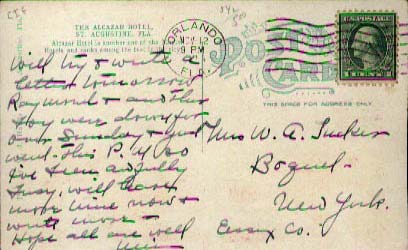 THE ALCAZAR HOTEL,
ST. AUGUSTINE, FLA.
Alcazar Hotel is another one of the
Hotels and ranks among the best
ORLANDO
NOV 12
9 PM
FLA.
POST
CARD
THIS SPACE FOR ADDRESS ONLY
Will try & write a
letter tomorrow
Raymond & and this
boy were down for
over Sunday & just
went this P.M. so
I've been awfully
busy, will have
more time now &
write more
Hope all are well
Mrs W. A. Tucker
Boquet
New York.
Essex Co.